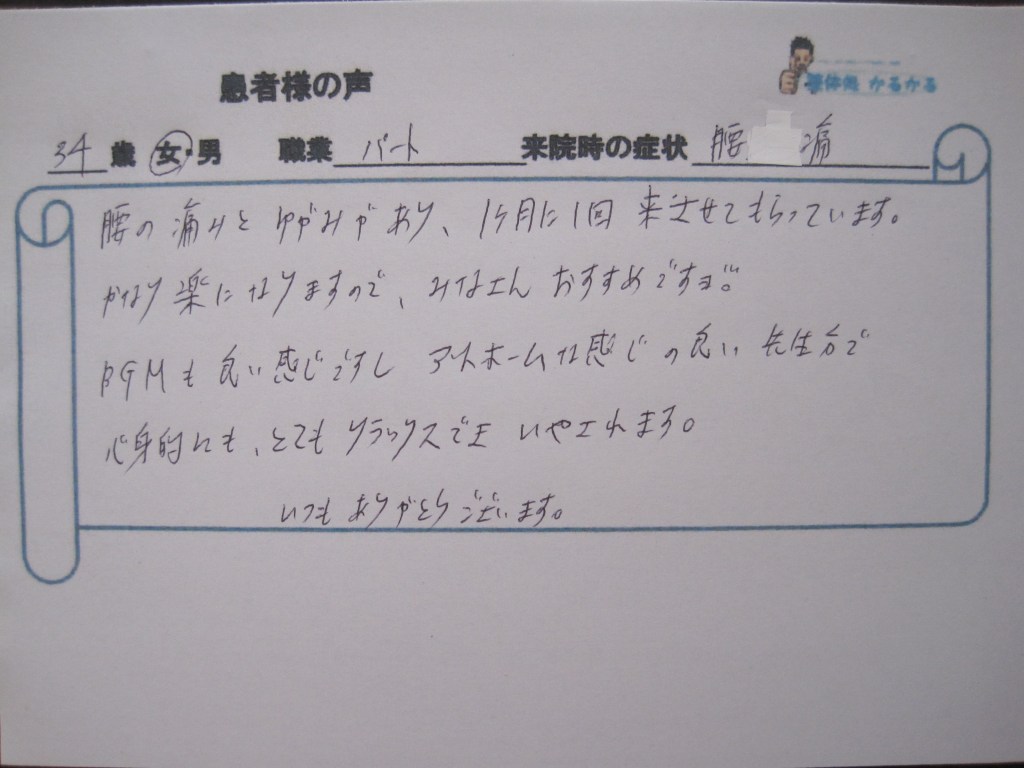 患者様の声
整体処 かるかる
34 歳 女・男 職業 パート 来院時の症状 腰 痛
腰の痛みとゆがみがあり、1ヶ月に1回来させてもらっています。
かなり楽になりますので、みなさんおすすめですよ。
BGMも良い感じですし アットホームな感じの良い先生方で
心身的にも、とてもリラックスできいやされます。
いつもありがとうございます。